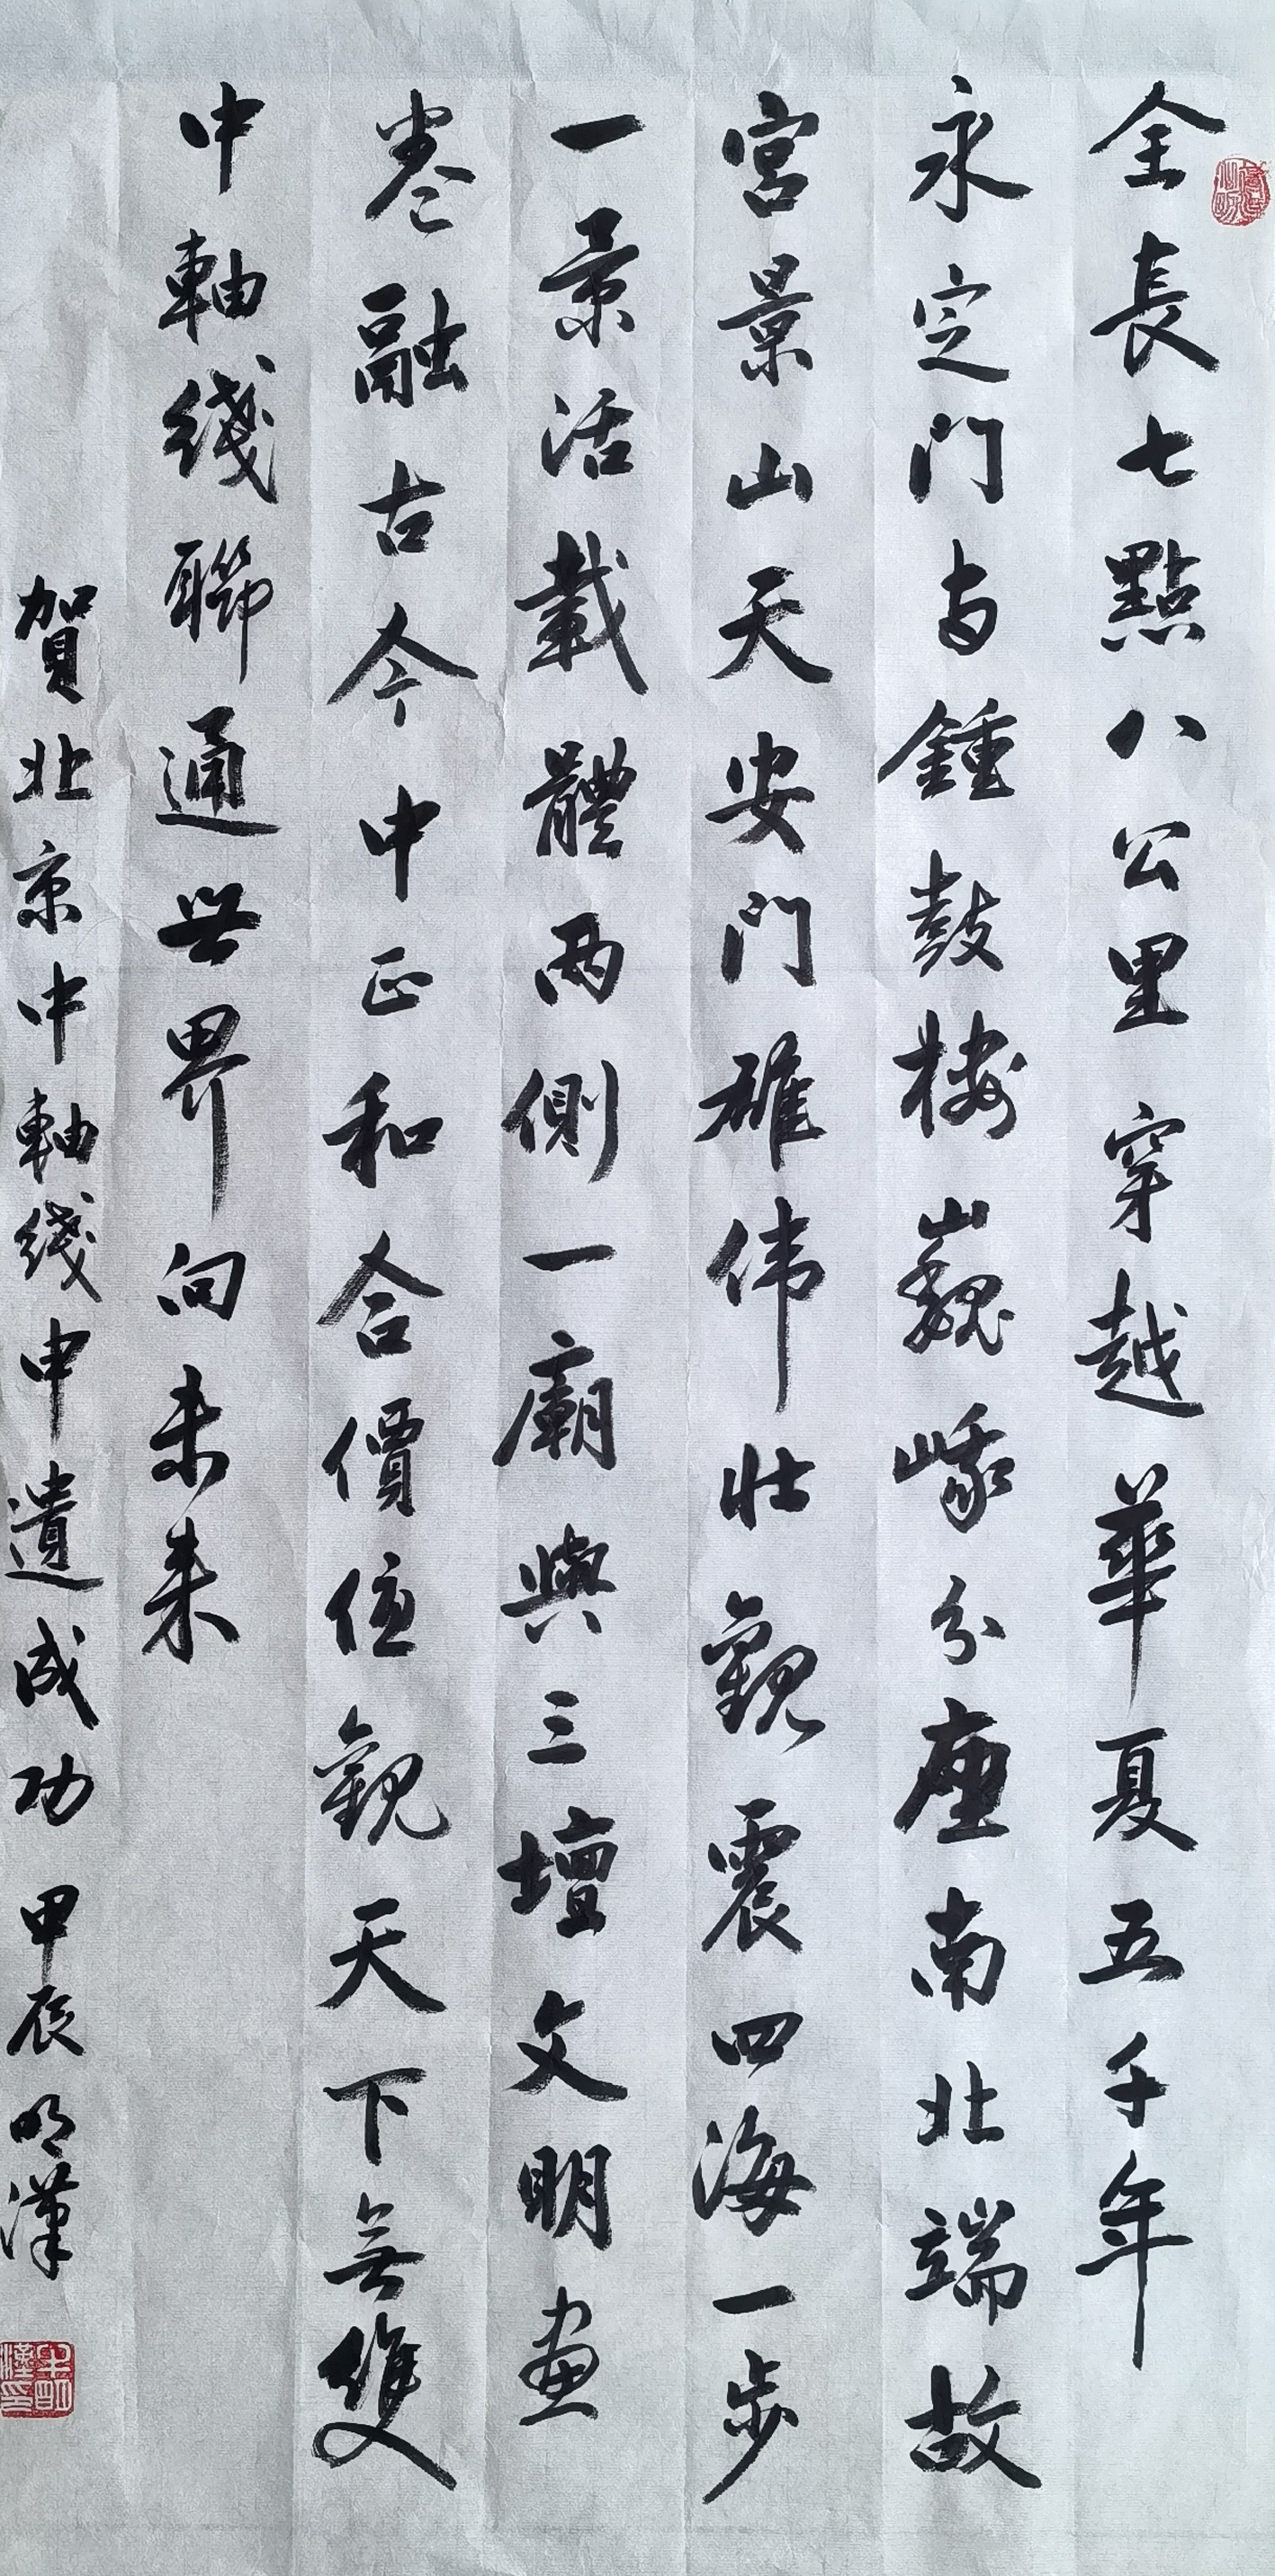 全長七點八公里穿越華夏五千年
永定门与鍾鼓楼巍峨分座南北端故
宮景山天安门雄伟壮觀震四海一步
一景活載體两側一廟與三壇文明画
卷融古今中正和合價值觀天下无雙
中軸线聯通世界向未来
賀北京中軸线申遺成功甲辰明漢